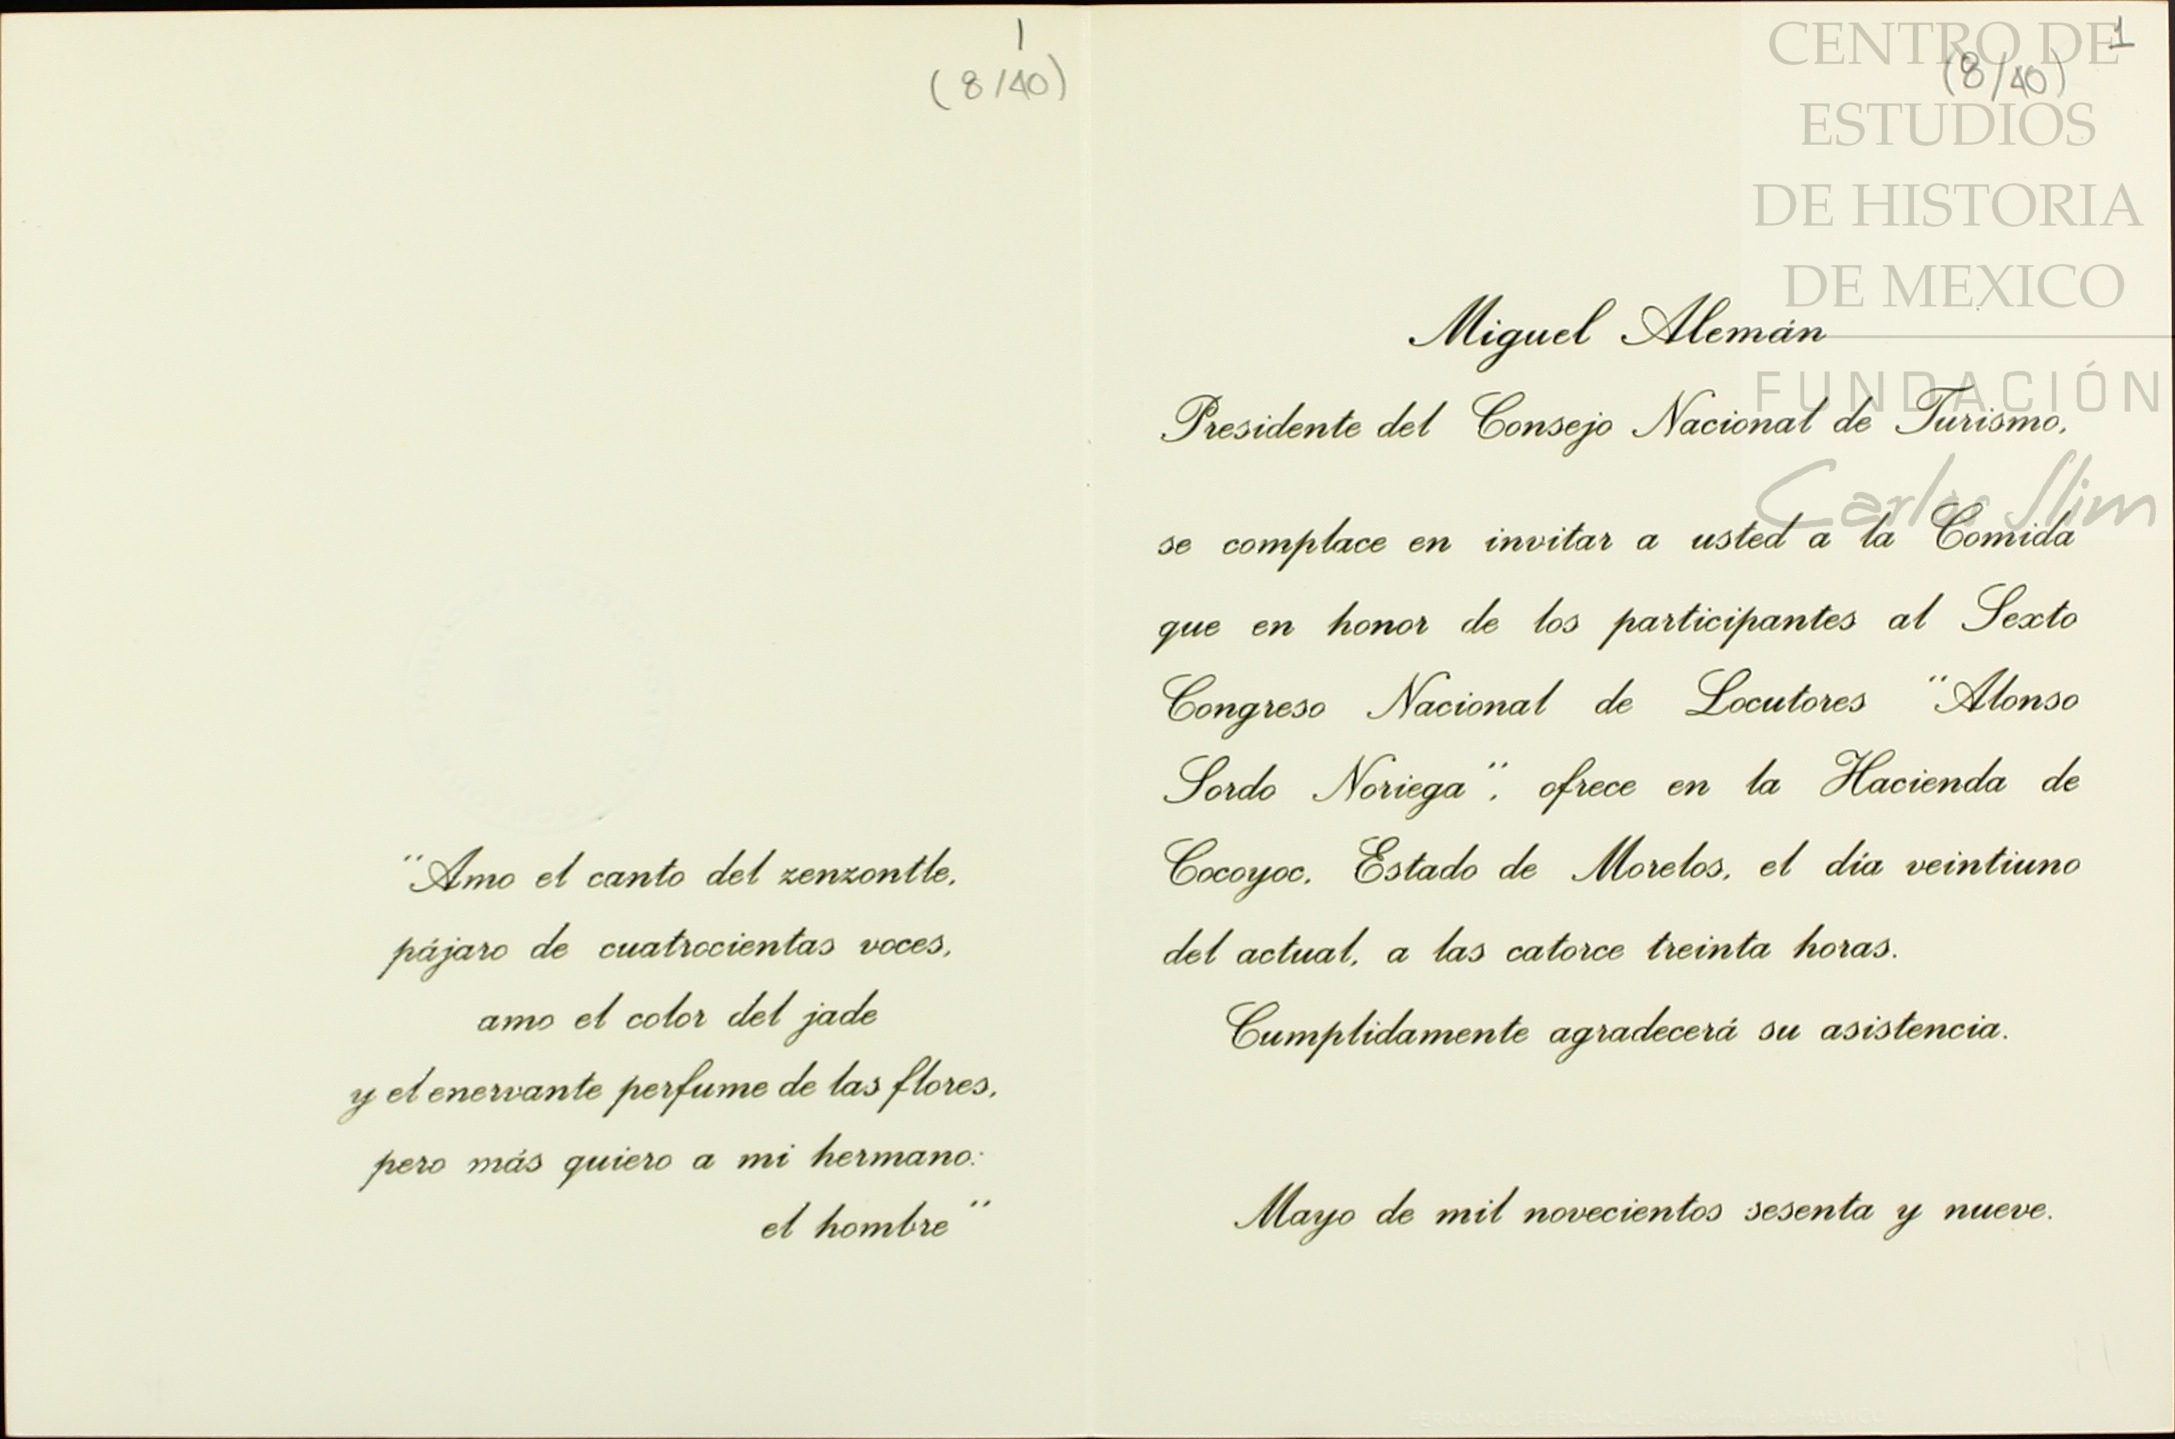 1
(8/40)
"Amo el canto del zenzontle,
pájaro de cuatrocientas voces,
amo el color del jade
y el enervante perfume de las flores,
pero más quiero a mi hermano:
el hombre"
1
(8/40)
CENTRO DE
ESTUDIOS
DE HISTORIA
DE MEXICO
FUNDACIÓN
Carlos Slim
Miguel Alemán
Presidente del Consejo Nacional de Turismo,
se complace en invitar a usted a la Comida
que en honor de los participantes al Sexto
Congreso Nacional de Locutores "Alonso
Sordo Noriega", ofrece en la Hacienda de
Cocoyoc, Estado de Morelos, el día veintiuno
del actual, a las catorce treinta horas.
Cumplidamente agradecerá su asistencia.
Mayo de mil novecientos sesenta y nueve.